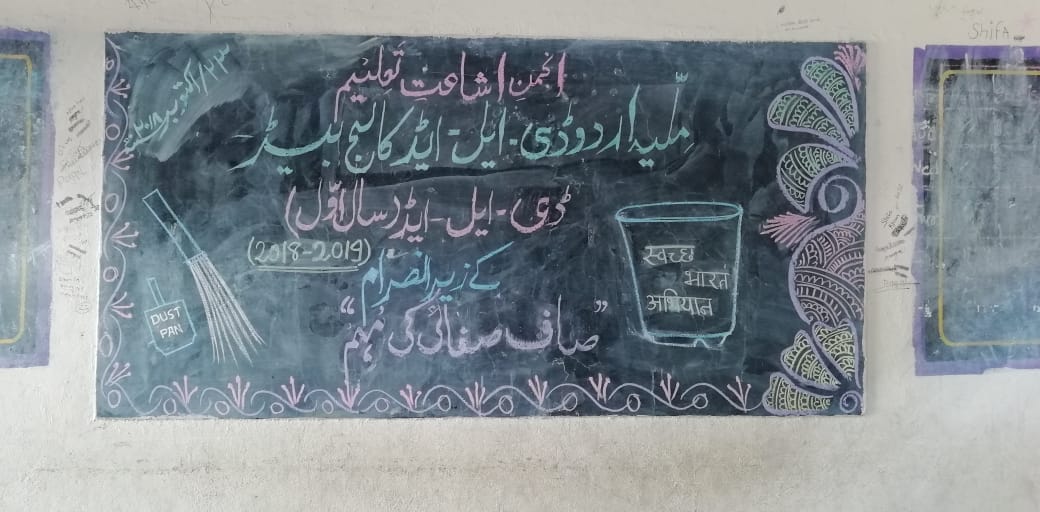 انجمنِ اشاعتِ تعلیم
۲۳/اکتوبر ۲۰۱۸
ملّیہ اردو ڈی-ایل-ایڈ کالج بیڑ-
ڈی-ایل-ایڈ (سال اوّل)
(2018-2019)
کے زیرِ انصرام
"صاف صفائی کی مُہم"
DUST
PAN
स्वच्छ
भारत
अभियान
Shifa